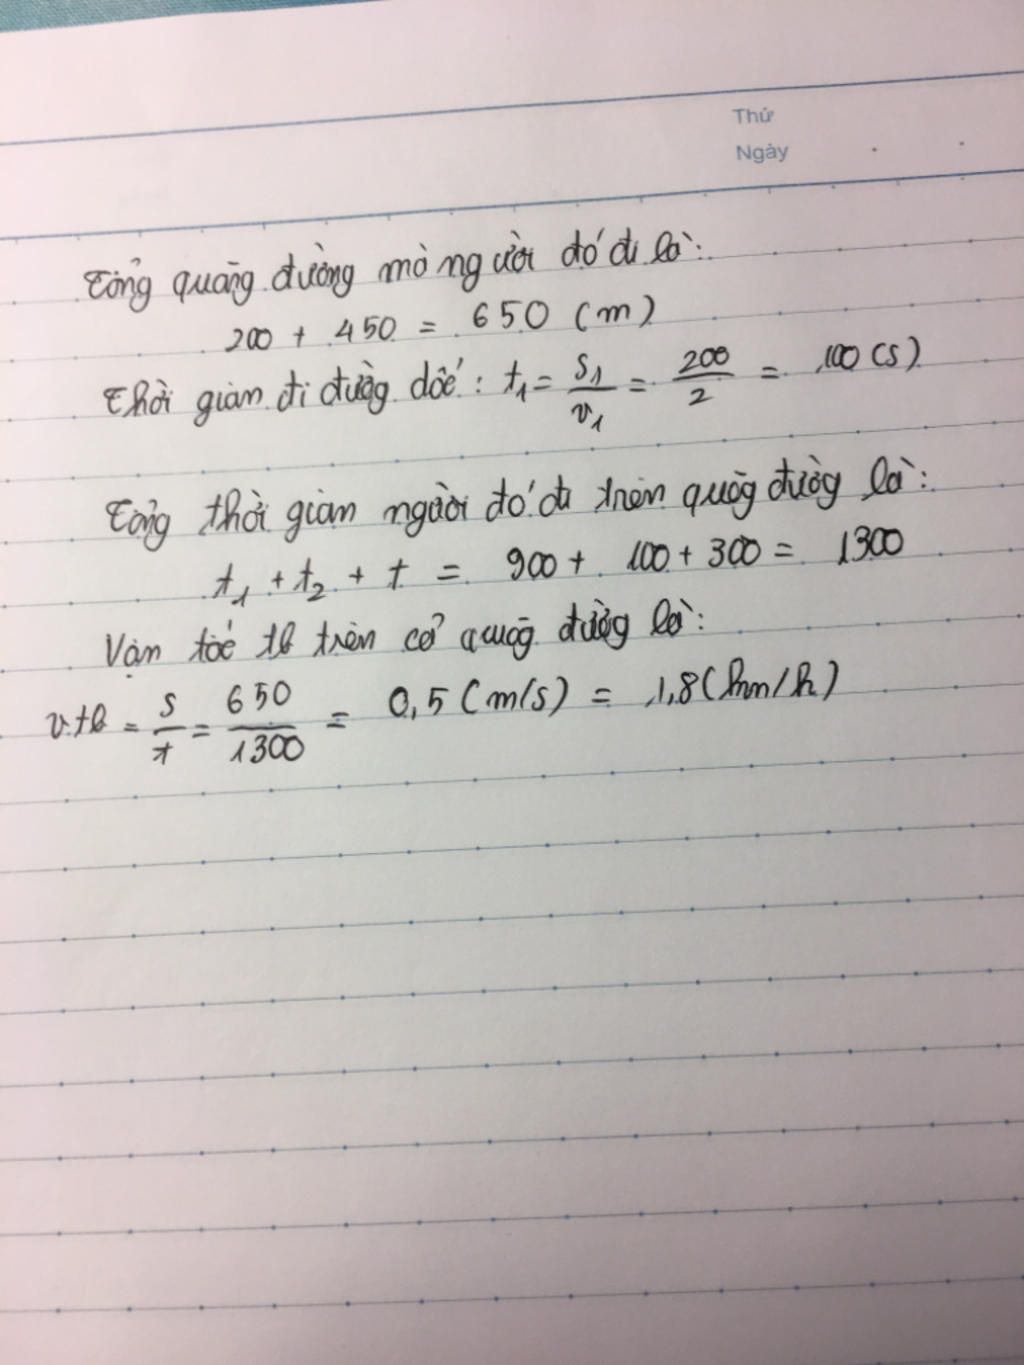 Thứ
Ngày
Tổng quãng đường mà người đó đi là:
200 + 450 = 650 (m)
Thời gian đi đường dốc: t₁ = s₁/v₁ = 200/2 = 100 (s)
Tổng thời gian người đó đi trên quãng đường là:
t₁ + t₂ + t = 900 + 100 + 300 = 1300
Vận tốc tb trên cả quãng đường là:
vtb = s/t = 650/1300 = 0,5 (m/s) = 1,8 (km/h)